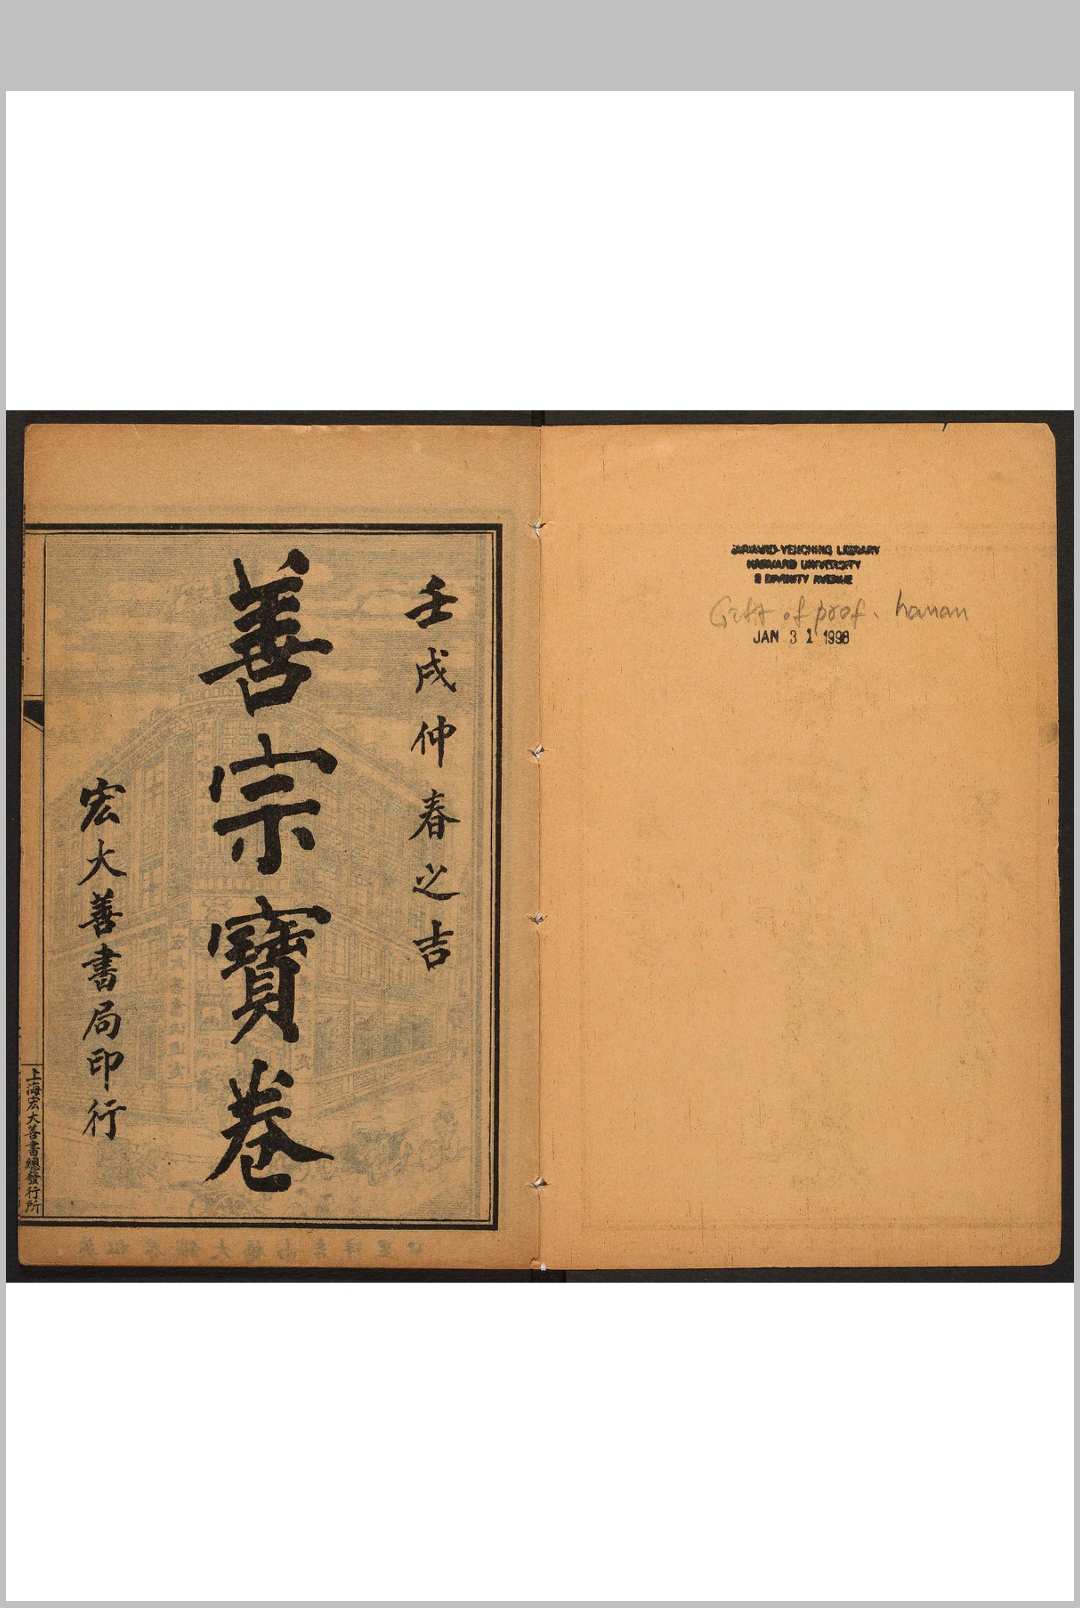 HARVARD-YENCHING LIBRARY
HARVARD UNIVERSITY
2 DIVINITY AVENUE
Gift of prof. hanan
JAN 31 1998
壬戌仲春之吉
善宗寶卷
宏大善書局印行
上海宏大善書總發行所